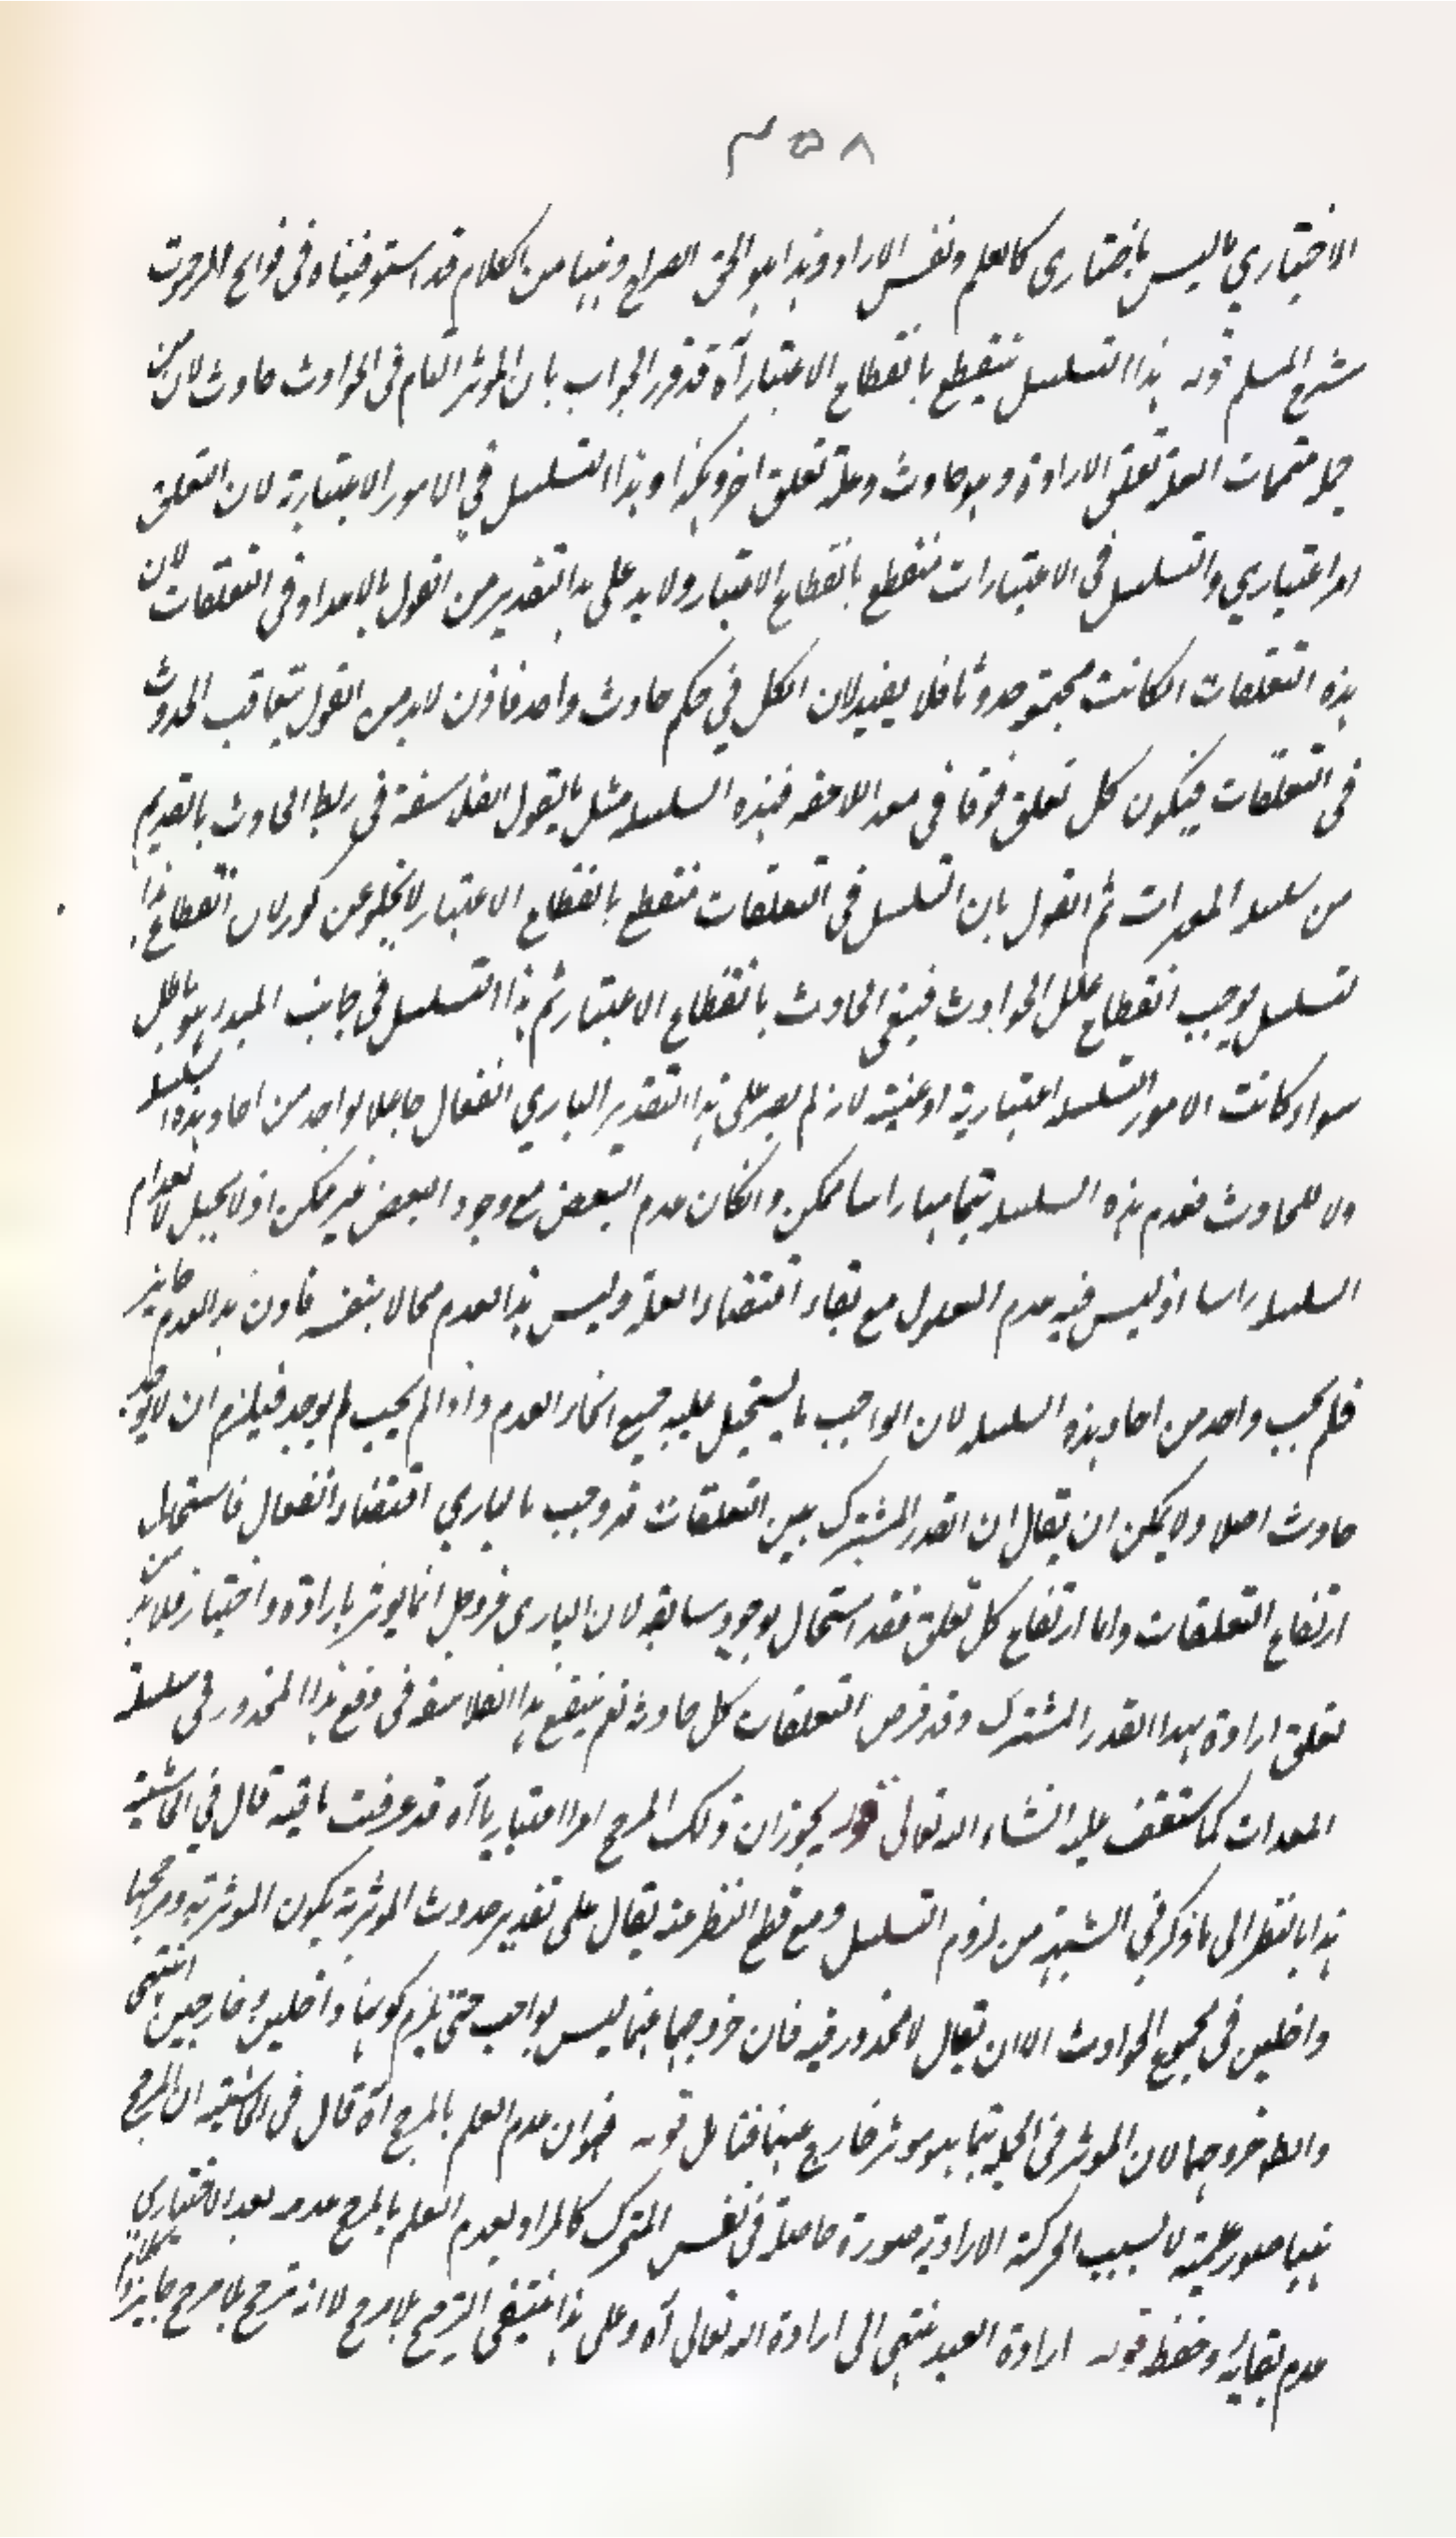 ٣٥٨
الاختياري ما ليس باختياري كالعلم ونفس الارادة وهذا هو الحق الصراح وههنا من الكلام قد استوفيناه في فواتح الرحموت
شرح المسلم قوله هذا التسلسل ينقطع بانقطاع الاعتبار آه قد قرر الجواب بان الموثر التام في الحوادث حادث لان من
جملة متممات العلة تعلق الارادة وهو حادث وعلته تعلق اخر وهكذا وهذا التسلسل في الامور الاعتبارية لان التعلق
امر اعتباري والتسلسل في الاعتبارات منقطع بانقطاع الاعتبار ولا بد على هذا التقدير من القول بالاعداد في التعلقات لان
هذه التعلقات ان كانت مجتمعة حدوثا فلا يفيد لان الكل في حكم حادث واحد فاذن لا بد من القول بتعاقب الحدوث
في التعلقات فيكون كل تعلق فوقاني معد اللاحقه فهذه السلسلة مثل ما يقول الفلاسفة في ربط الحادث بالقديم
من سلسلة المعدات ثم القول بان التسلسل في التعلقات منقطع بانقطاع الاعتبار لا يخلو عن كور لان انقطاع هذا
لتسلسل يوجب انقطاع علل الحوادث فينتفي الحادث بانقطاع الاعتبار ثم هذا التسلسل في جانب المبدا هو باطل
سواء كانت الامور المتسلسلة اعتبارية او عينية لانه لم يصر على هذا التقدير الباري الفعال جاعلا لواحد من احاد هذه السلسلة
ولا للحادث فعدم هذه السلسلة بتمامها راسا ممكن وان كان عدم البعض مع وجود البعض غير ممكن اذ لا يحيل لانعدام
السلسلة راسا اذ ليس فيه عدم المعلول مع بقاء اقتضاء العلة وليس هذا العدم محالا بنفسه فاذن هذا العدم جايز
فلم يجب واحد من احاد هذه السلسلة لان الواجب ما يستحيل عليه جميع انحاء العدم واذا لم يجب لم يوجد فيلزم ان لا يوجد
حادث اصلا ولا يمكن ان يقال ان القدر المشترك بين التعلقات قد وجب بالباري اقتضاء الفعال فاستحال
ارتفاع التعلقات واما ارتفاع كل تعلق فقد استحال بوجود سابقه لان الباري عز وجل انما يوثر بارادة واختيار فلا بد من
تعلق ارادة بهذا القدر المشترك وقد فرض التعلقات كل حادث نعم ينفع هذا الفلاسفة في دفع هذا المحذور في سلسلة
المعدات كما ستقف عليه انشاء الله تعالى قوله يجوز ان ذلك المرجح امرا اعتباريا آه قد عرفت ما فيه قال في الحاشية
هذا بالنظر الى ما ذكر في الشبهة من لزوم التسلسل ومع قطع النظر عنه يقال على تقدير حدوث الموثرية يكون الموثرية ومرجحها
داخلين في مجموع الحوادث الا ان يقال لا محذور فيه فان خروجهما عنها ليس بواجب حتى يلزم كونها داخلين وخارجين انتهى
والطه خروجهما لان الموثر في الجملة بتمامها هو موثر خارج عنها فتامل قوله فجوز ان عدم العلم بالمرجح آه قال في الحاشية ان المرجح
ههنا صور علمية لا بسبب الحركة الارادية صورة حاصلة في نفس المتحرك كالمراد بعدم العلم بالمرجح عدمه بعد الاختياري
عدم بقايه وحفظه قوله ارادة العبد منتهى الى ارادة الله تعالى آه وعلى هذا ينتفي الترجيح بلا مرجح لا انه ترجح بلا مرجح جايز